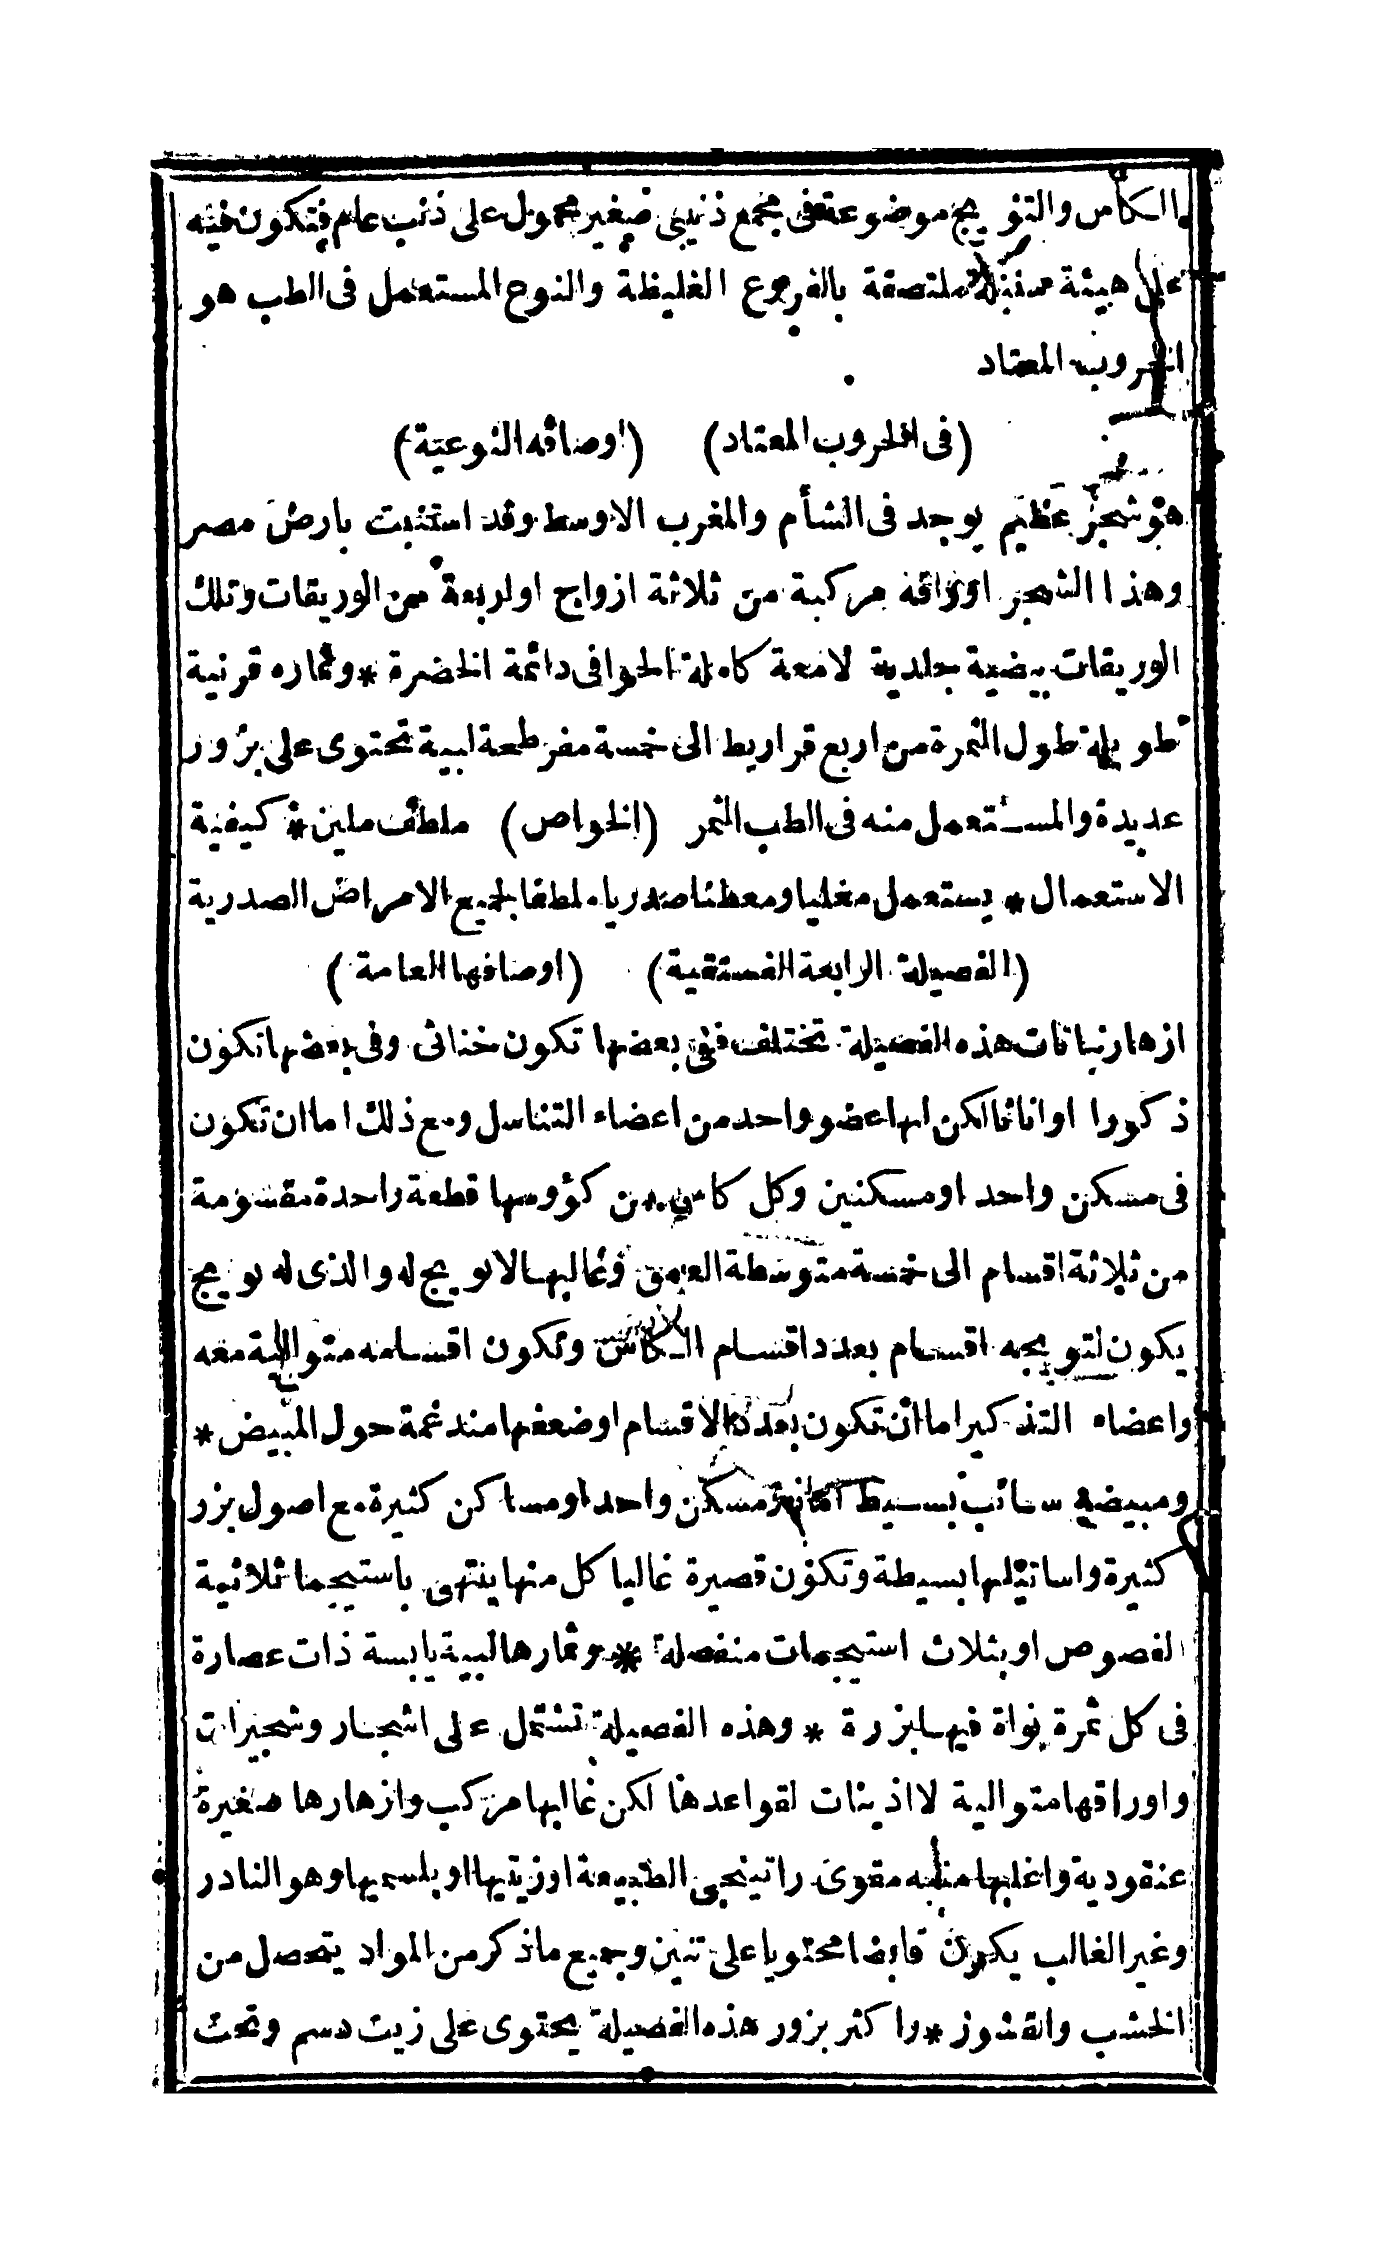 الكاس والتويج موضوعة فى مجمع ذنيبى صغير محمول على ذنب عام فتكون حينه
على هيئة سنبلة ملتصقة بالفروع الغليظة والنوع المستعمل فى الطب هو
الخروب المعتاد
(فى الخروب المعتاد) (اوصافه النوعية)
هو شجر عظيم يوجد فى الشأم والمغرب الاوسط وقد استنبت بارض مصر
وهذا الشجر اوراقه مركبة من ثلاثة ازواج او اربعة من الوريقات وتلك
الوريقات بيضية جلدية لامعة كاملة الحوافى دائمة الخضرة * وثماره قرنية
طويلة طول الثمرة من اربع قراريط الى خمسة مفرطحة لبية تحتوى على بزور
عديدة والمستعمل منه فى الطب الثمر (الخواص) ملطف ملين * كيفية
الاستعمال * يستعمل مغليا ومعطنا صدريا ملطفا لجميع الامراض الصدرية
(الفصيلة الرابعة الفستقية) (اوصافها العامة)
ازهار نباتات هذه الفصيلة تختلف ففى بعضها تكون خناثى وفى بعضها تكون
ذكورا او اناثا لكن لها عضو واحد من اعضاء التناسل ومع ذلك اما ان تكون
فى مسكن واحد او مسكنين وكل كاس من كؤوسها قطعة واحدة مقسومة
من ثلاثة اقسام الى خمسة متوسطة العمق وغالبها لا تويج له والذى له تويج
يكون لتويجه اقسام بعدد اقسام الكاس وتكون اقسامه متوالية معه
واعضاء التذكير اما ان تكون بعدد الاقسام او ضعفها مندغمة حول المبيض *
ومبيضه سائب بسيط مسكن واحد او مساكن كثيرة مع اصول بزر
كثيرة واساتيلها بسيطة وتكون قصيرة غالبا كل منها ينتهى باستيجما ثلاثية
الفصوص او بثلاث استيجمات منفصلة * وثمارها لبية يابسة ذات عصارة
فى كل ثمرة نواة فيها بزرة * وهذه الفصيلة تشتمل على اشجار وشجيرات
واوراقها متوالية لا اذينات لقواعدها لكن غالبها مركب وازهارها صغيرة
عنقودية واغلبها منبه مقوى راتينجى الطبيعة او زيتيها او بلسميها وهو النادر
وغير الغالب يكون قابضا محتويا على تنين وجميع ما ذكر من المواد يتحصل من
الخشب والقشور * واكثر بزور هذه الفصيلة يحتوى على زيت دسم وتحت